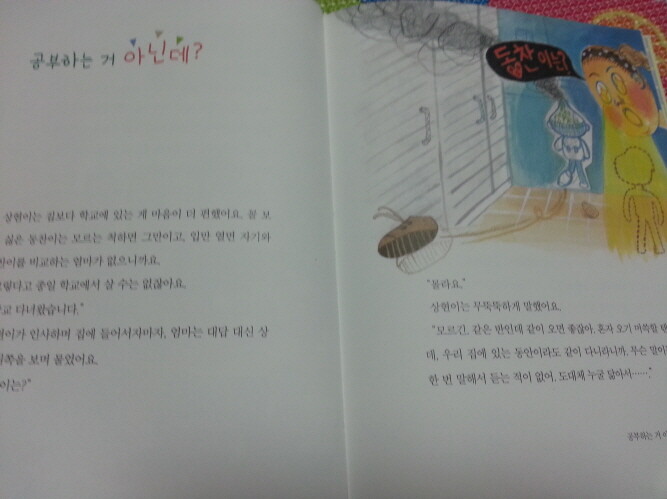 공부하는 거 아닌데?
상현이는 집보다 학교에 있는 게 마음이 더 편했어요. 꼴 보
싫은 동찬이는 모르는 척하면 그만이고, 입만 열면 자기와
찬이를 비교하는 엄마가 없으니까요.
렇다고 종일 학교에서 살 수는 없잖아요.
교 다녀왔습니다."
현이가 인사하며 집에 들어서자마자, 엄마는 대답 대신 상
뒤쪽을 보며 물었어요.
이는?"
동찬이는?
"몰라요."
상현이는 무뚝뚝하게 말했어요.
"모르긴. 같은 반인데 같이 오면 좋잖아. 혼자 오기 머쓱할 텐
데. 우리 집에 있는 동안이라도 같이 다니라니까. 무슨 말이
한 번 말해서 듣는 적이 없어. 도대체 누굴 닮아서……."
공부하는 거